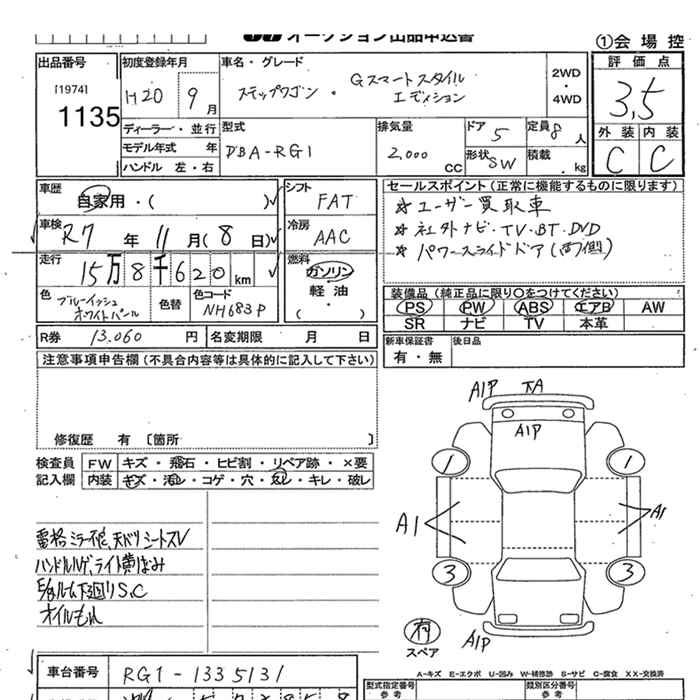 オークション出品申込書
①会場控
出品番号
[1974]
1135
初度登録年月
H20 9月
車名・グレード
ステップワゴン ・ Gスマートスタイル
エディション
2WD
・
4WD
評価点
3,5
ディーラー・並行
モデル年式 年
ハンドル 左・右
型式
DBA-RG1
排気量
2,000 CC
ドア 5
形状 SW
定員 8人
積載 . kg
外装 内装
C C
車歴
自家用・( )
シフト
FAT
車検
R7年11月(8日)
冷房
AAC
走行
15万8千620km
燃料
ガソリン
軽油
・( )
色
ブルーイッシュ
ホワイトパール
色替
色コード
NH683P
R券 13.060 円
名変期限 月 日
セールスポイント(正常に機能するものに限ります)
☆ユーザー買取車
☆社外ナビ・TV・BT・DVD
☆パワースライドドア(両側)
装備品(純正品に限り○をつけてください)
PS PW ABS エアB AW
SR ナビ TV 本革
新車保証書
有・無
後日品
注意事項申告欄(不具合内容等は具体的に記入して下さい)
修復歴 有 〔箇所 〕
検査員
記入欄
FW キズ・飛石・ヒビ割・リペア跡・×要
内装 キズ・汚れ・コゲ・穴・ススレ・キレ・破レ
シートスレ
ハンドルハゲ、ライト黄ばみ
S,C
オイルもれ
A1P
A1P
1 1
A1 A1
3 3
有
スペア
A1P
A-キズ E-エクボ U-凹み W-補修跡 S-サビ C-腐食 XX-交換済
車台番号 RG1-1335131
型式指定番号
参考
類別区分番号
参考